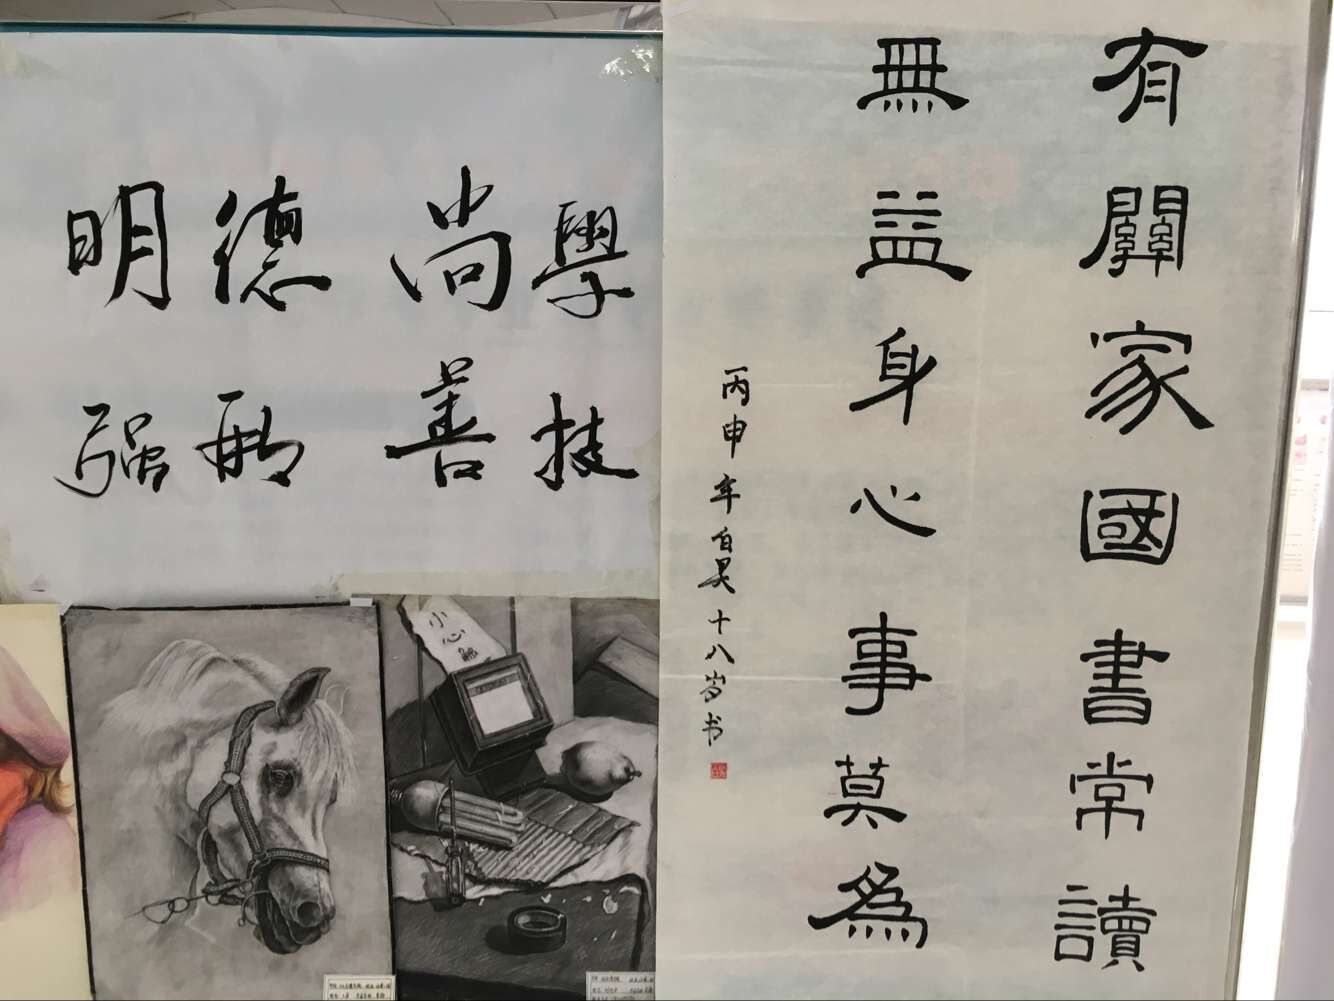 明德尚學
强能善技
有關家國書常讀
無益身心事莫為
丙申年白昊十八岁书
小心触